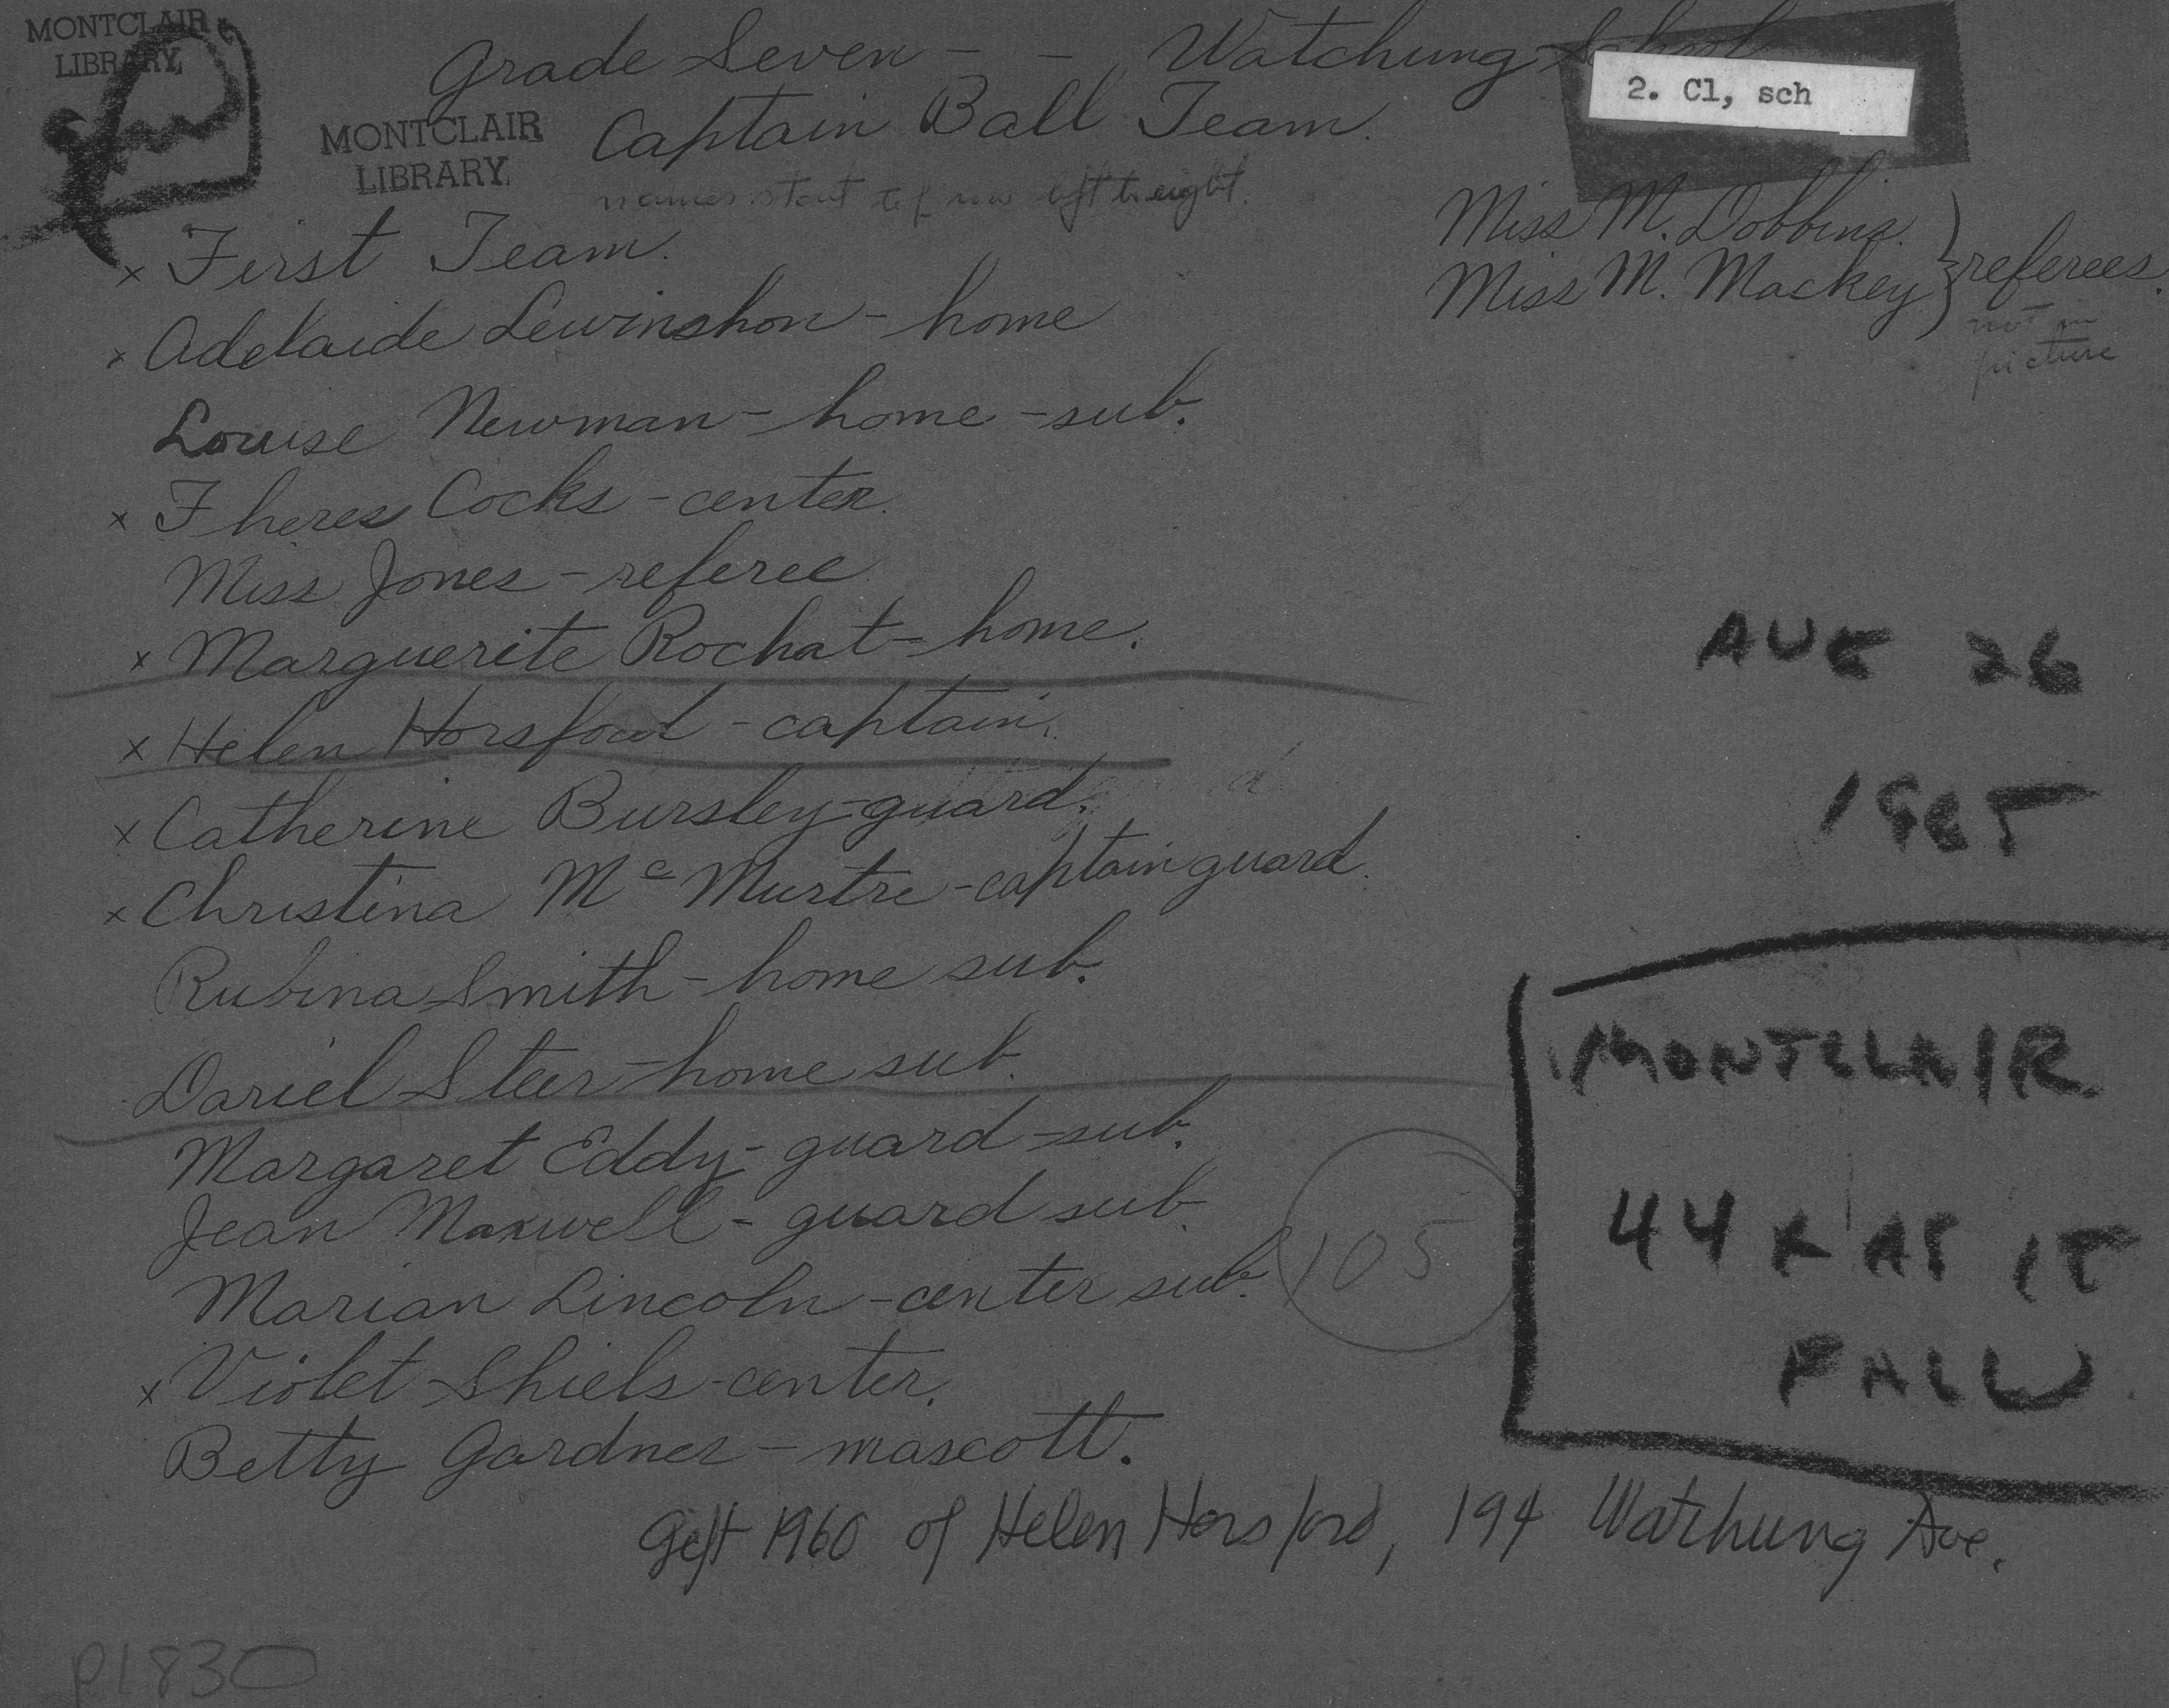 MONTCLAIR
LIBRARY
Grade Seven - - Watchung School
2. Cl, sch
MONTCLAIR
LIBRARY
Captain Ball Team.
names start top row left to right.
Miss M. Dobbins
Miss M. Mackey } referees.
not in
picture
x First Team.
x Adelaide Lewinshon - home
Louise Newman - home - sub.
x Theres Cocks - center.
Miss Jones - referee
x Marguerite Rochat - home.
x Helen Horsford - captain.
x Catherine Bursley - guard.
x Christina McMurtre - captain guard.
Rubina Smith - home sub.
Dariel Steer - home sub.
Margaret Eddy - guard - sub.
Jean Maxwell - guard sub.
Marian Lincoln - center sub.
x Violet Shiels - center.
Betty Gardner - mascott.
105
AUG 26
MONTCLAIR
44
FALL
Gift 1960 of Helen Horsford, 194 Watchung Ave.
P1830